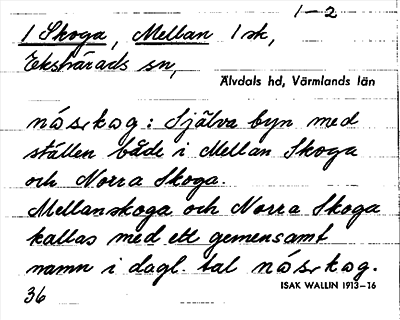 1-2
1 Skoga, Mellan 1 sk,
Ekshärads sn,
Älvdals hd, Värmlands län
nó̀s,kog: Själva byn med
ställen både i Mellan Skoga
och Norra Skoga.
Mellanskoga och Norra Skoga
kallas med ett gemensamt
namn i dagl. tal nó̀s,kog.
36
ISAK WALLIN 1913-16